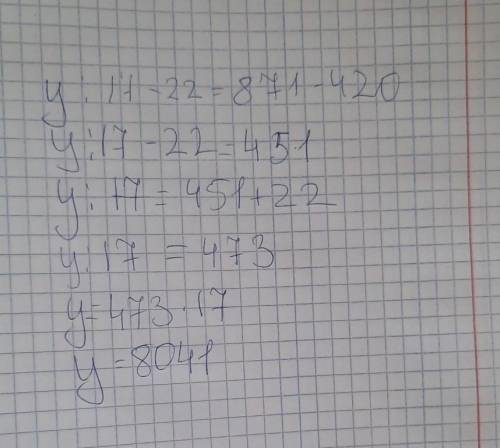 y : 17 - 22 = 871 - 420
y : 17 - 22 = 451
y : 17 = 451 + 22
y : 17 = 473
y = 473 · 17
y = 8041